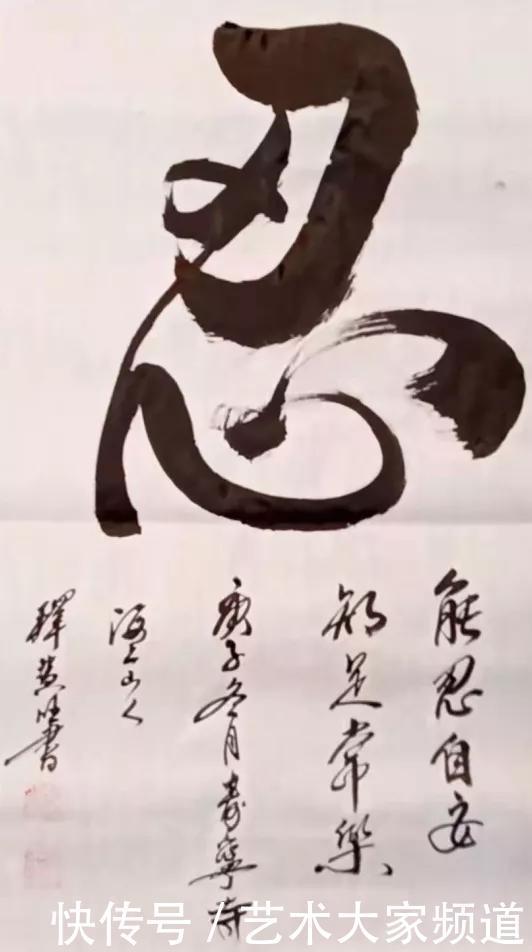 忍
能忍自安
知足常樂
庚子冬月壽寧寺
海上山人
釋慧明書
快传号/艺术大家频道